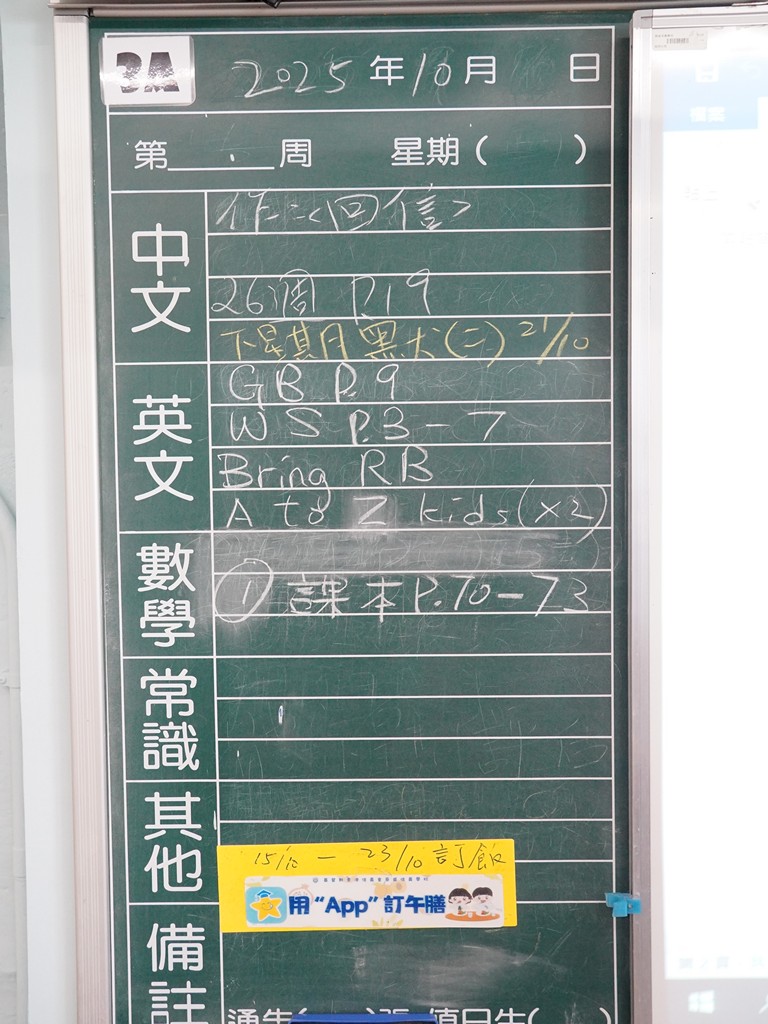 3A
2025年10月 日
第 周 星期( )
中文
作二<回信>
26週 P.19
下星期 黑犬(二) 21/10
英文
GB P.9
WS P.3-7
Bring RB
A to Z kids(×2)
數學
① 課本P.70-73
常識
其他
15/10 - 23/10 訂飯
用“App”訂午膳
備註
通告( )張 值日生( )